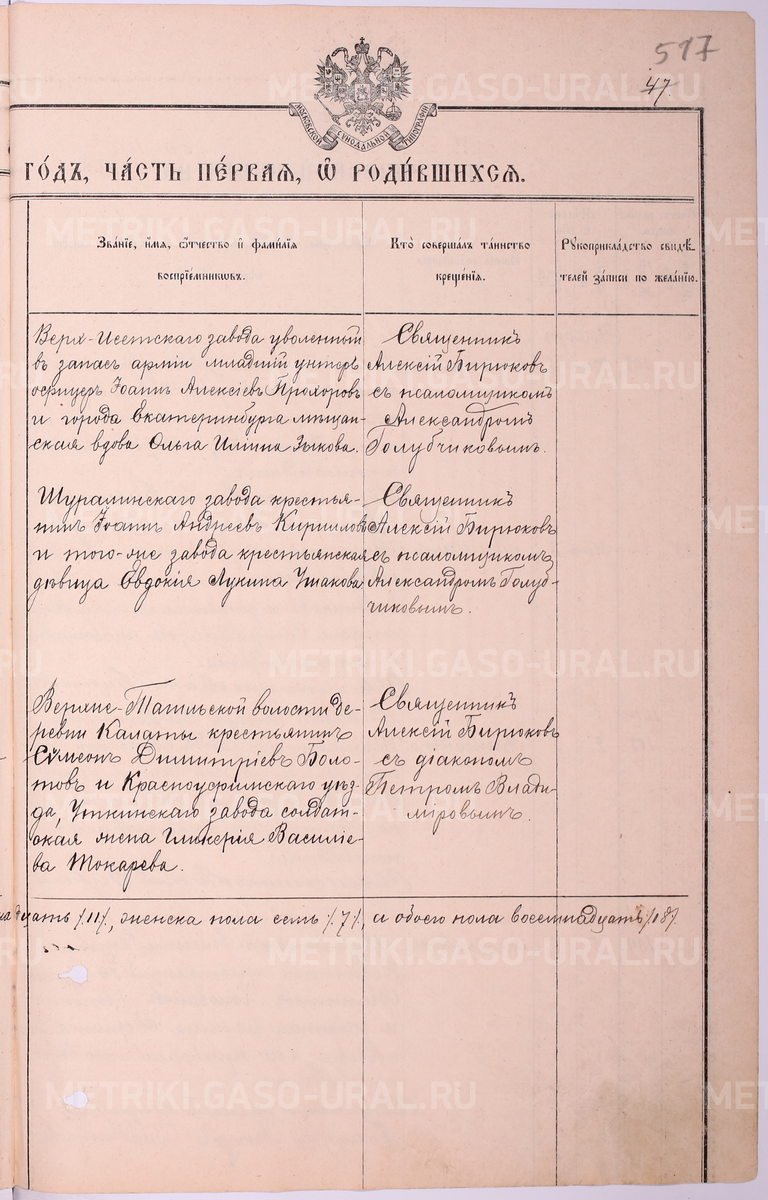 517
47.
МОСКОВСКОЙ СѴНОДАЛЬНОЙ ТИПОГРАФІИ
го́дъ, ча́сть пе́рваѧ, ѡ҆ роди́вшихсѧ.
Зва́нїе, и҆́мѧ, ѻ҆́тчество и҆ фами́лїѧ
воспрїе́мникѡвъ.
Кто̀ соверша́лъ та́инство
креще́нїѧ.
Рꙋкоприкла́дство свидѣ́-
телей за́писи по жела́нїю.
Верх-Исетскаго завода уволенный
въ запасъ арміи младшій унтеръ
офицеръ Іоаннъ Алексіевъ Прохоровъ
и города Екатеринбурга мѣщан-
ская вдова Ольга Иліина Зыкова.
Священникъ
Алексій Бирюковъ
съ псаломщикомъ
Александромъ
Голубчиковымъ.
Шуралинскаго завода крестья-
нинъ Іоаннъ Андреевъ Кирилловъ
и того-же завода крестьянская
дѣвица Евдокія Лукина Ушакова
Священникъ
Алексій Бирюковъ
съ псаломщикомъ
Александромъ Голуб-
чиковымъ.
Верхне-Тагильской волости де-
ревни Калаты крестьянинъ
Сѵмеонъ Димитріевъ Боло-
товъ и Красноуфимскаго уѣз-
да, Уткинскаго завода солдат-
ская жена Гликерія Василіе-
ва Токарева.
Священникъ
Алексій Бирюковъ
съ діакономъ
Петромъ Влади-
міровымъ.
надцать /11/, женска пола семь /7/, а обоего пола восемнадцать /18/
METRIKI.GASO-URAL.RU